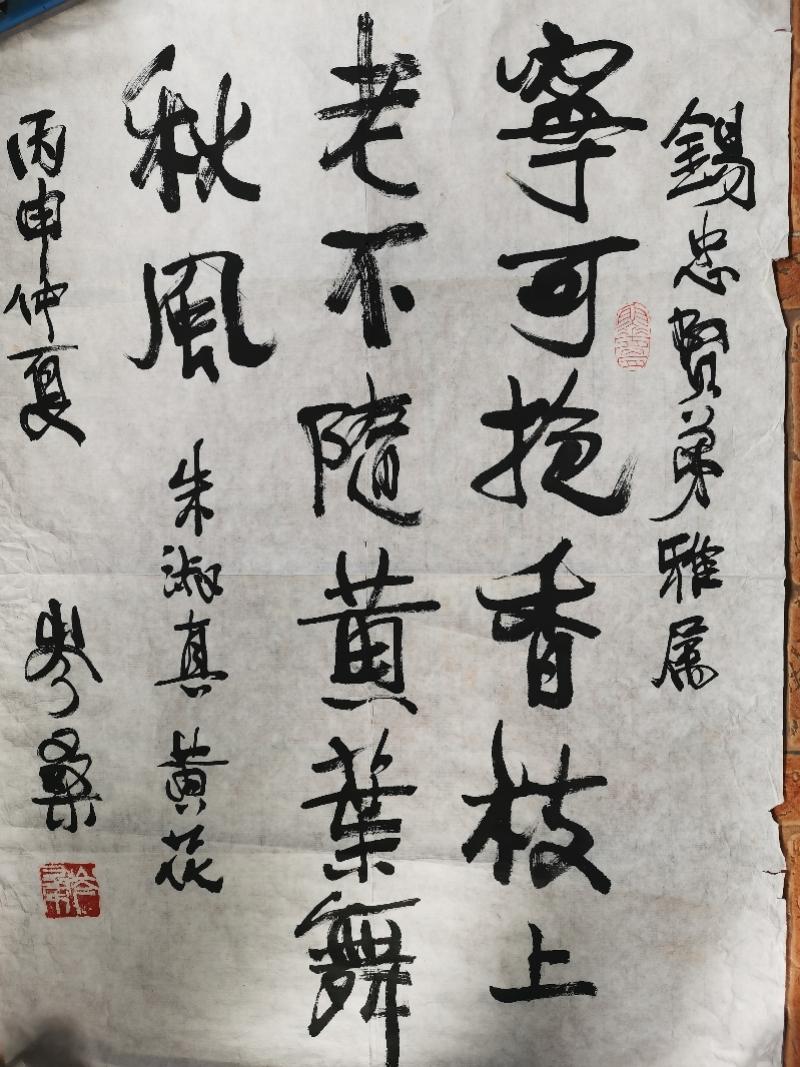 錫忠賢弟雅属
寧可抱香枝上
老不隨黄葉舞
秋風
朱淑真黄花
丙申仲夏